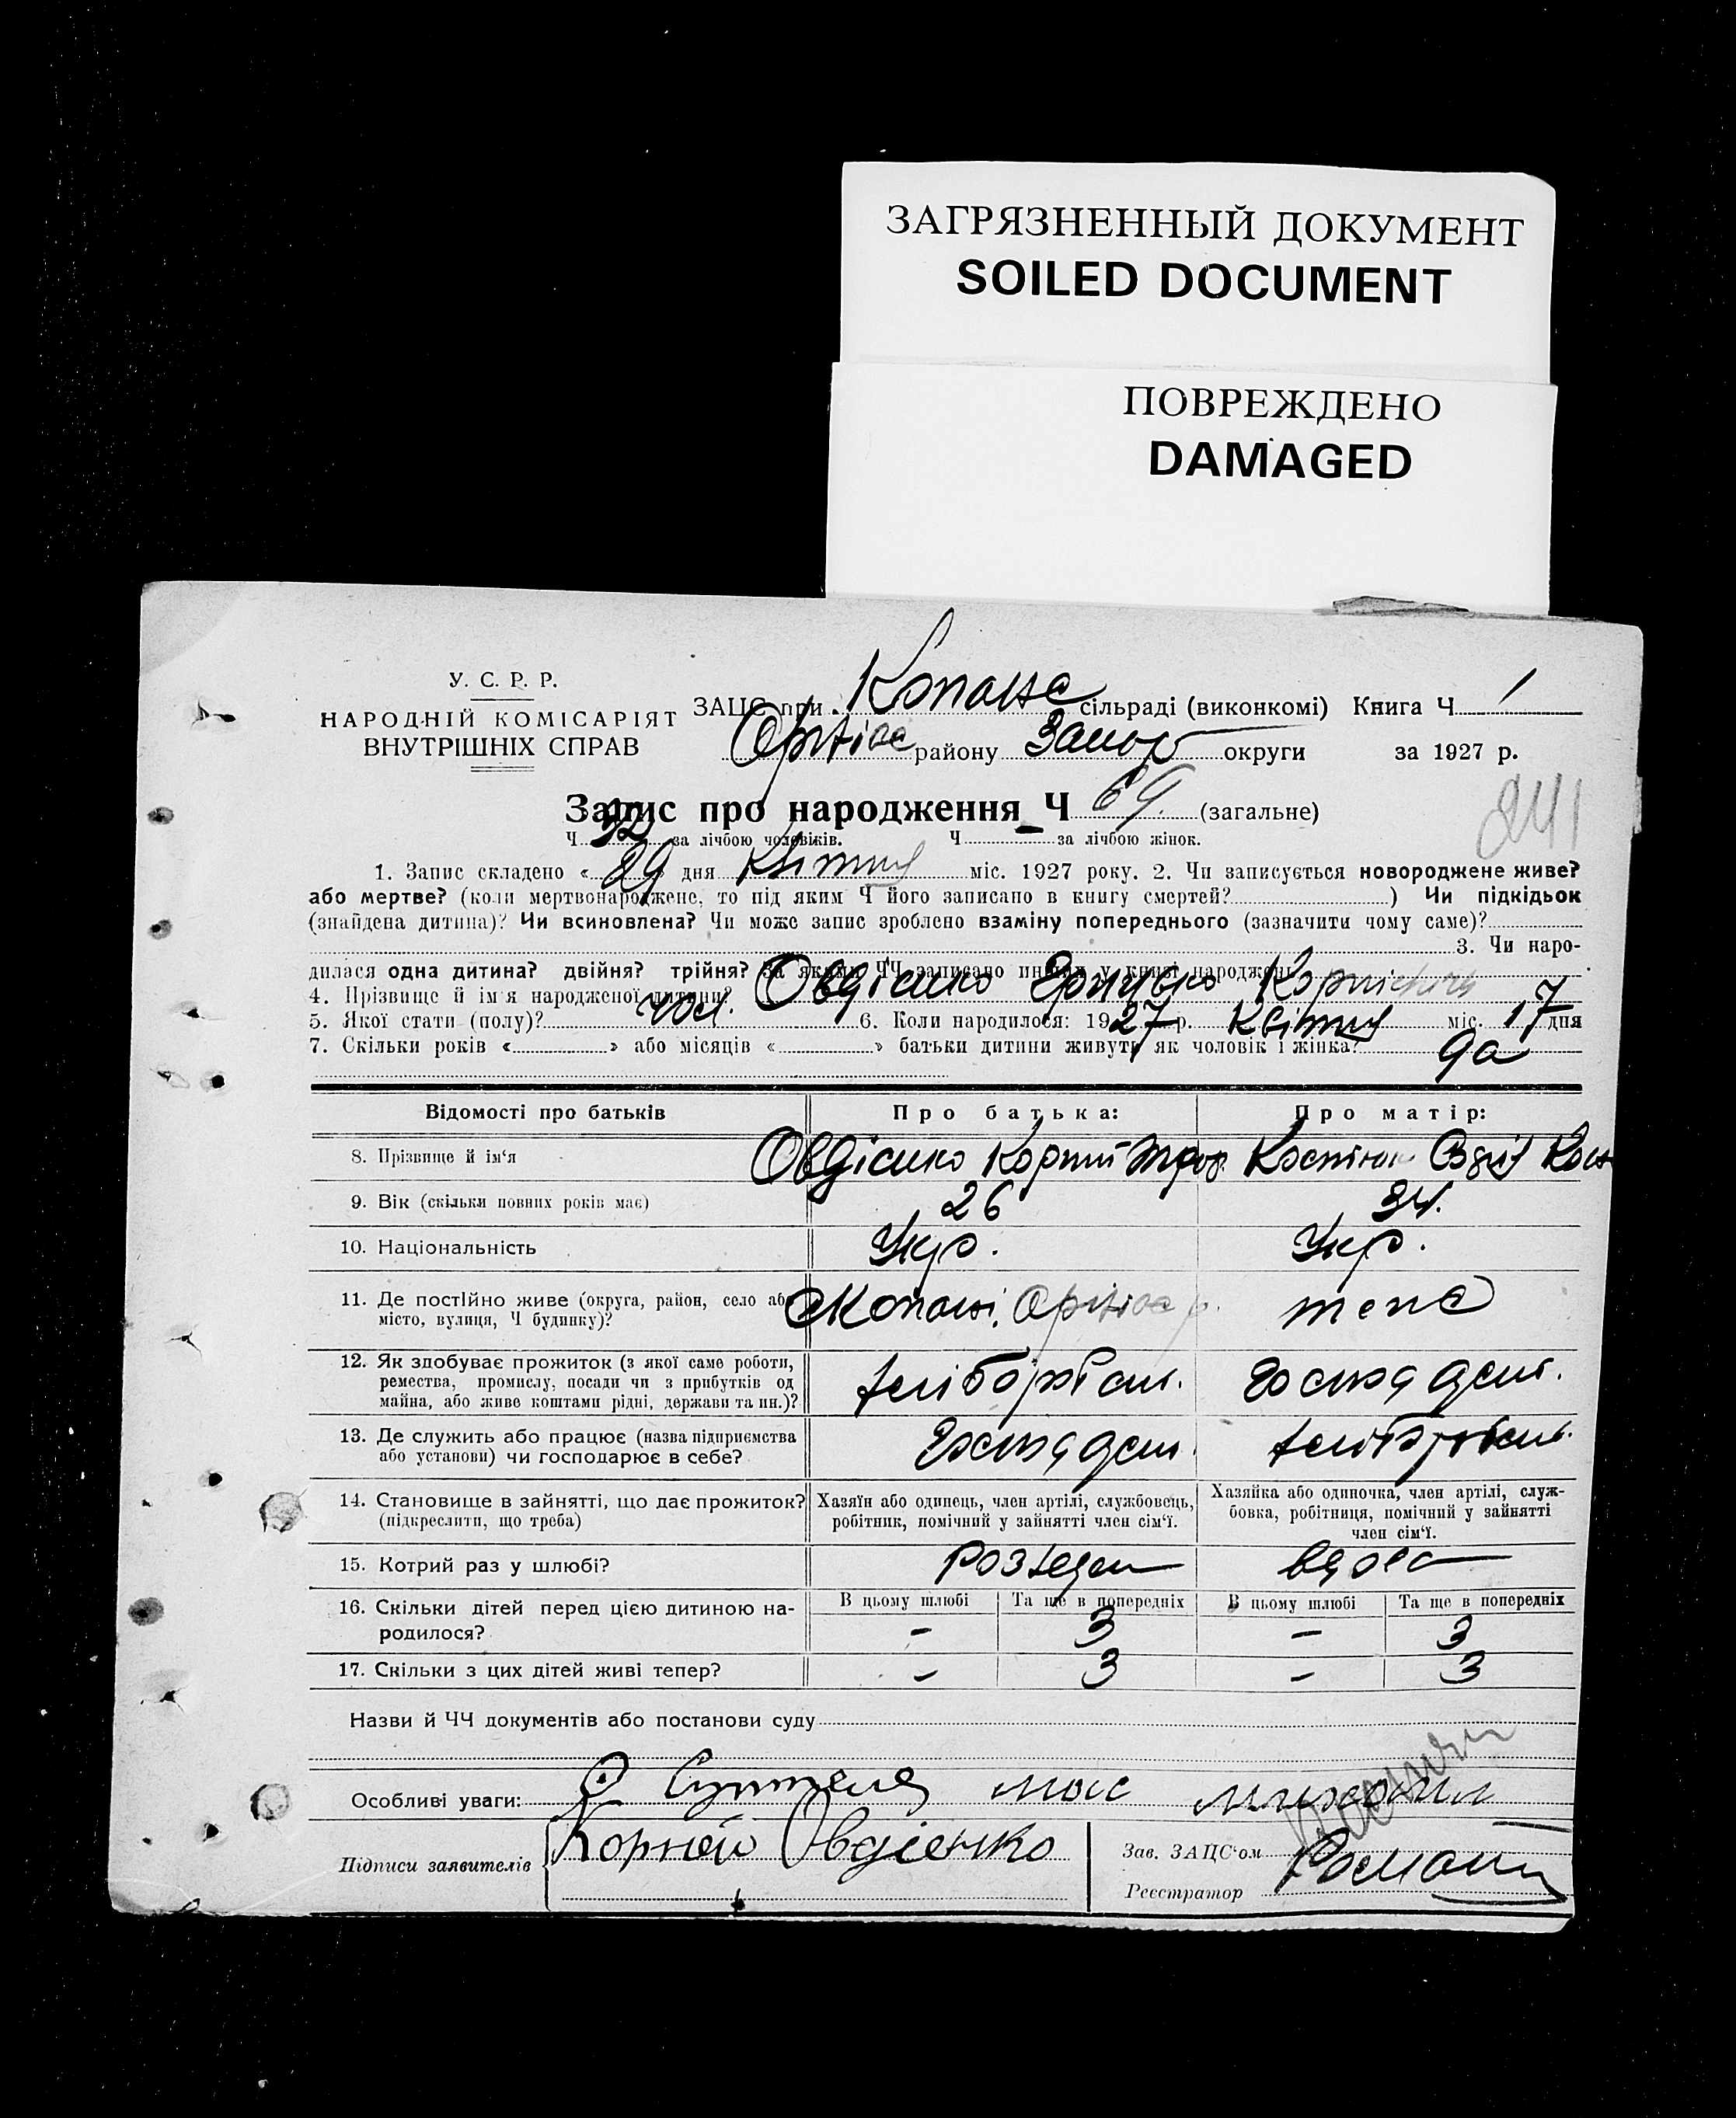 ЗАГРЯЗНЕННЫЙ ДОКУМЕНТ
SOILED DOCUMENT
ПОВРЕЖДЕНО
DAMAGED
У. С. Р. Р.
НАРОДНІЙ КОМІСАРІЯТ
ВНУТРІШНІХ СПРАВ
ЗАЦС при Копансс сільраді (виконкомі) Книга Ч 1
району Запор округи за 1927 р.
Запис про народження Ч 69 (загальне)
241
Ч 32 за лічбою чоловіків. Ч за лічбою жінок.
1. Запис складено « 29 » дня Квітня міс. 1927 року. 2. Чи записується новороджене живе?
або мертве? (коли мертвонароджене, то під яким Ч його записано в книгу смертей? ) Чи підкідьок
(знайдена дитина)? Чи всиновлена? Чи може запис зроблено взаміну попереднього (зазначити чому саме)?
3. Чи наро-
дилася одна дитина? двійня? трійня? За якими ЧЧ записано инших у книзі народжень
4. Прізвище й ім'я народженої дитини? Овдієнко
5. Якої стати (полу)? чол. 6. Коли народилося: 1927 р. Квітня міс. 17 дня
7. Скільки років « » або місяців « » батьки дитини живуть як чоловік і жінка? да
Відомості про батьків Про батька: Про матір:
8. Прізвище й ім'я Овдієнко Корній Троф.
9. Вік (скільки повних років має) 26 34.
10. Національність Укр. Укр.
11. Де постійно живе (округа, район, село або
місто, вулиця, Ч будинку)? Копані, р. теж
12. Як здобуває прожиток (з якої саме роботи,
ремества, промислу, посади чи з прибутків од
майна, або живе коштами рідні, держави та ин.)? хліборобст.
13. Де служить або працює (назва підприємства
або установи) чи господарює в себе? хлібороб
14. Становище в зайнятті, що дає прожиток?
(підкреслити, що треба)
Хазяїн або одинець, член артілі, службовець,
робітник, помічний у зайнятті член сім'ї.
Хазяйка або одиночка, член артілі, служ-
бовка, робітниця, помічний у зайнятті
член сім'ї.
15. Котрий раз у шлюбі? Розведен вдова
16. Скільки дітей перед цією дитиною на-
родилося?
В цьому шлюбі Та ще в попередніх В цьому шлюбі Та ще в попередніх
- 3 - 3
17. Скільки з цих дітей живі тепер? - 3 - 3
Назви й ЧЧ документів або постанови суду
Особливі уваги:
Підписи заявителів Корней Овдієнко
Зав. ЗАЦС'ом
Реєстратор